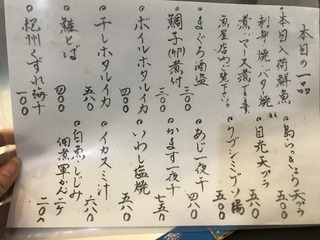 本日の一品
本日入荷鮮魚
刺身・焼・バタ焼
煮・マース煮でます
魚屋店内ご覧下さい。
まぐろ酒盗 三〇〇
鯛子(卵)煮付 三〇〇
ボイルホタルイカ 五〇〇
干しホタルイカ 五八〇
鮭とば 四〇〇
紀州くずれ梅干 一〇〇
島らっきょう天ぷら 五〇〇
目光天ぷら 五〇〇
クブシミゲソ揚 五〇〇
あじ一夜干 四八〇
かます一夜干 七五〇
いわし塩焼 五八〇
イカスミ汁 六八〇
白魚・しじみ
佃煮軍かん二ケ 二〇〇